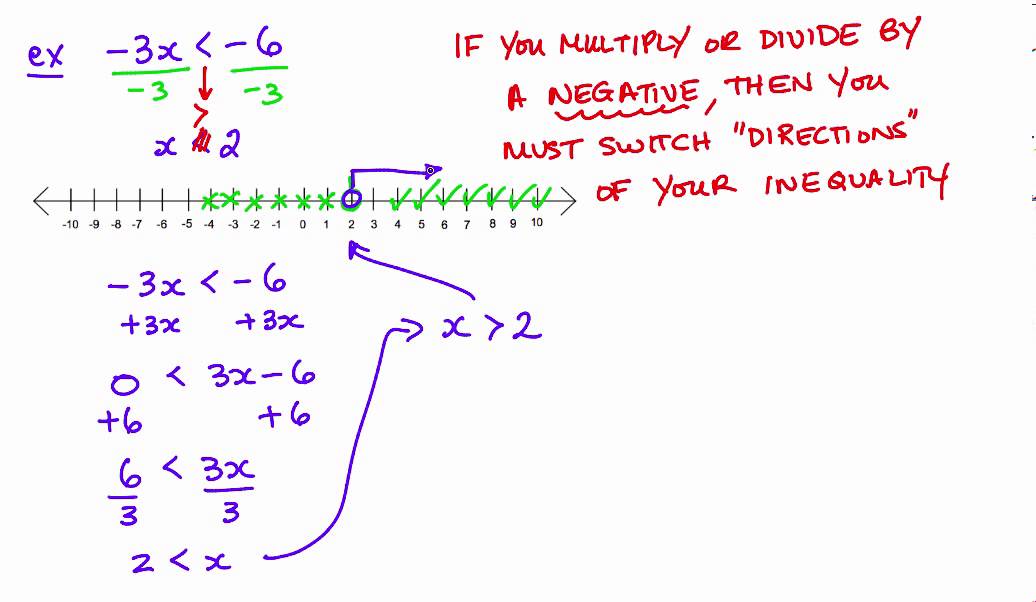 ex -3x < -6
-3 -3
>
x 2
IF YOU MULTIPLY OR DIVIDE BY
A NEGATIVE, THEN YOU
MUST SWITCH "DIRECTIONS"
OF YOUR INEQUALITY
-10 -9 -8 -7 -6 -5 -4 -3 -2 -1 0 1 2 3 4 5 6 7 8 9 10
-3x < -6
+3x +3x
0 < 3x - 6
+6 +6
6 < 3x
3 3
2 < x
x > 2